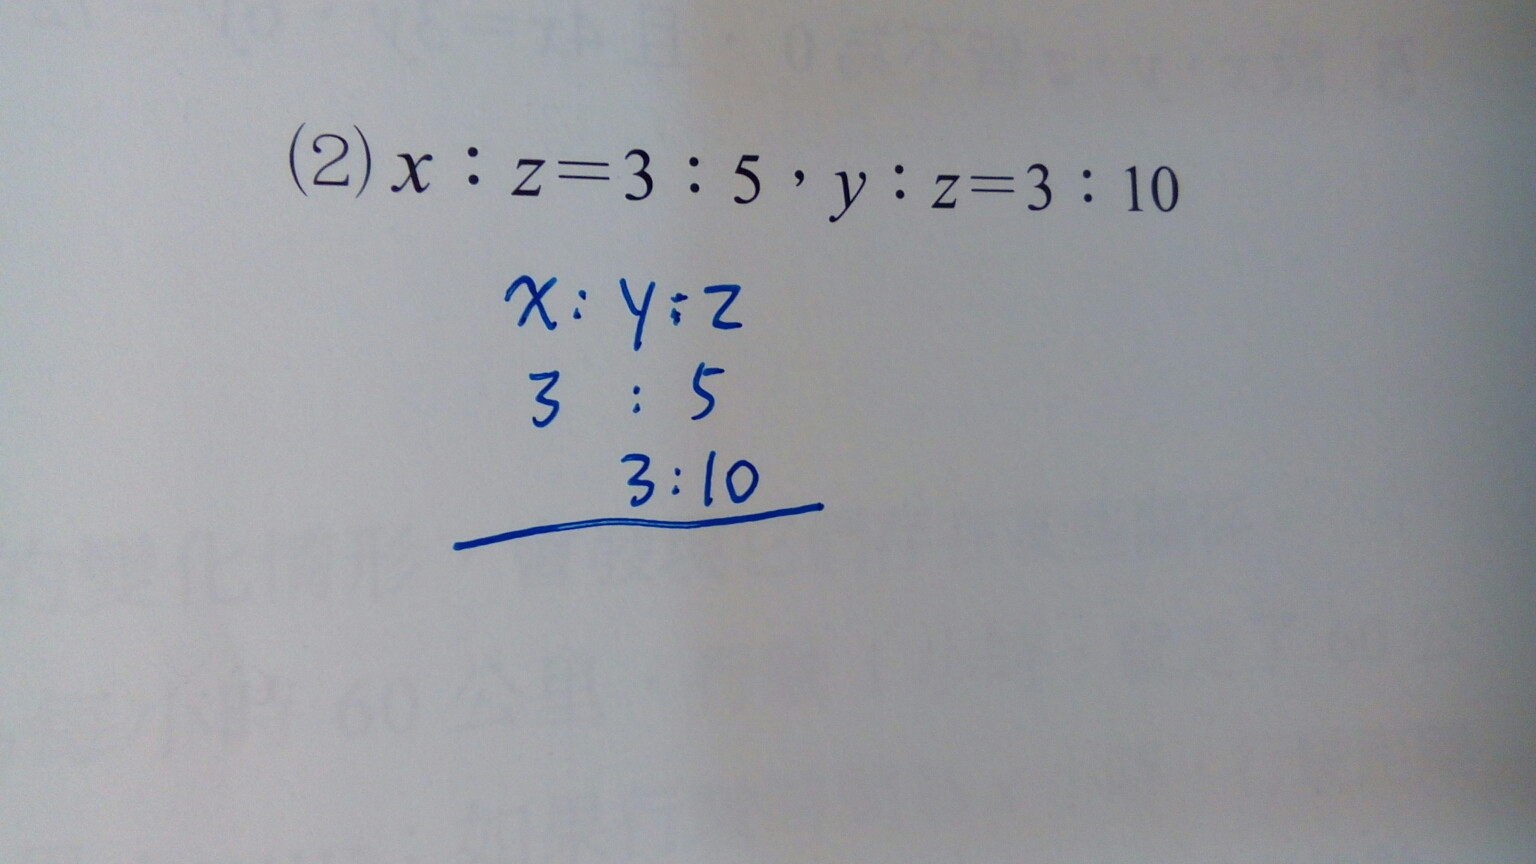 (2) x：z=3：5，y：z=3：10
x:y:z
3 : 5
3:10